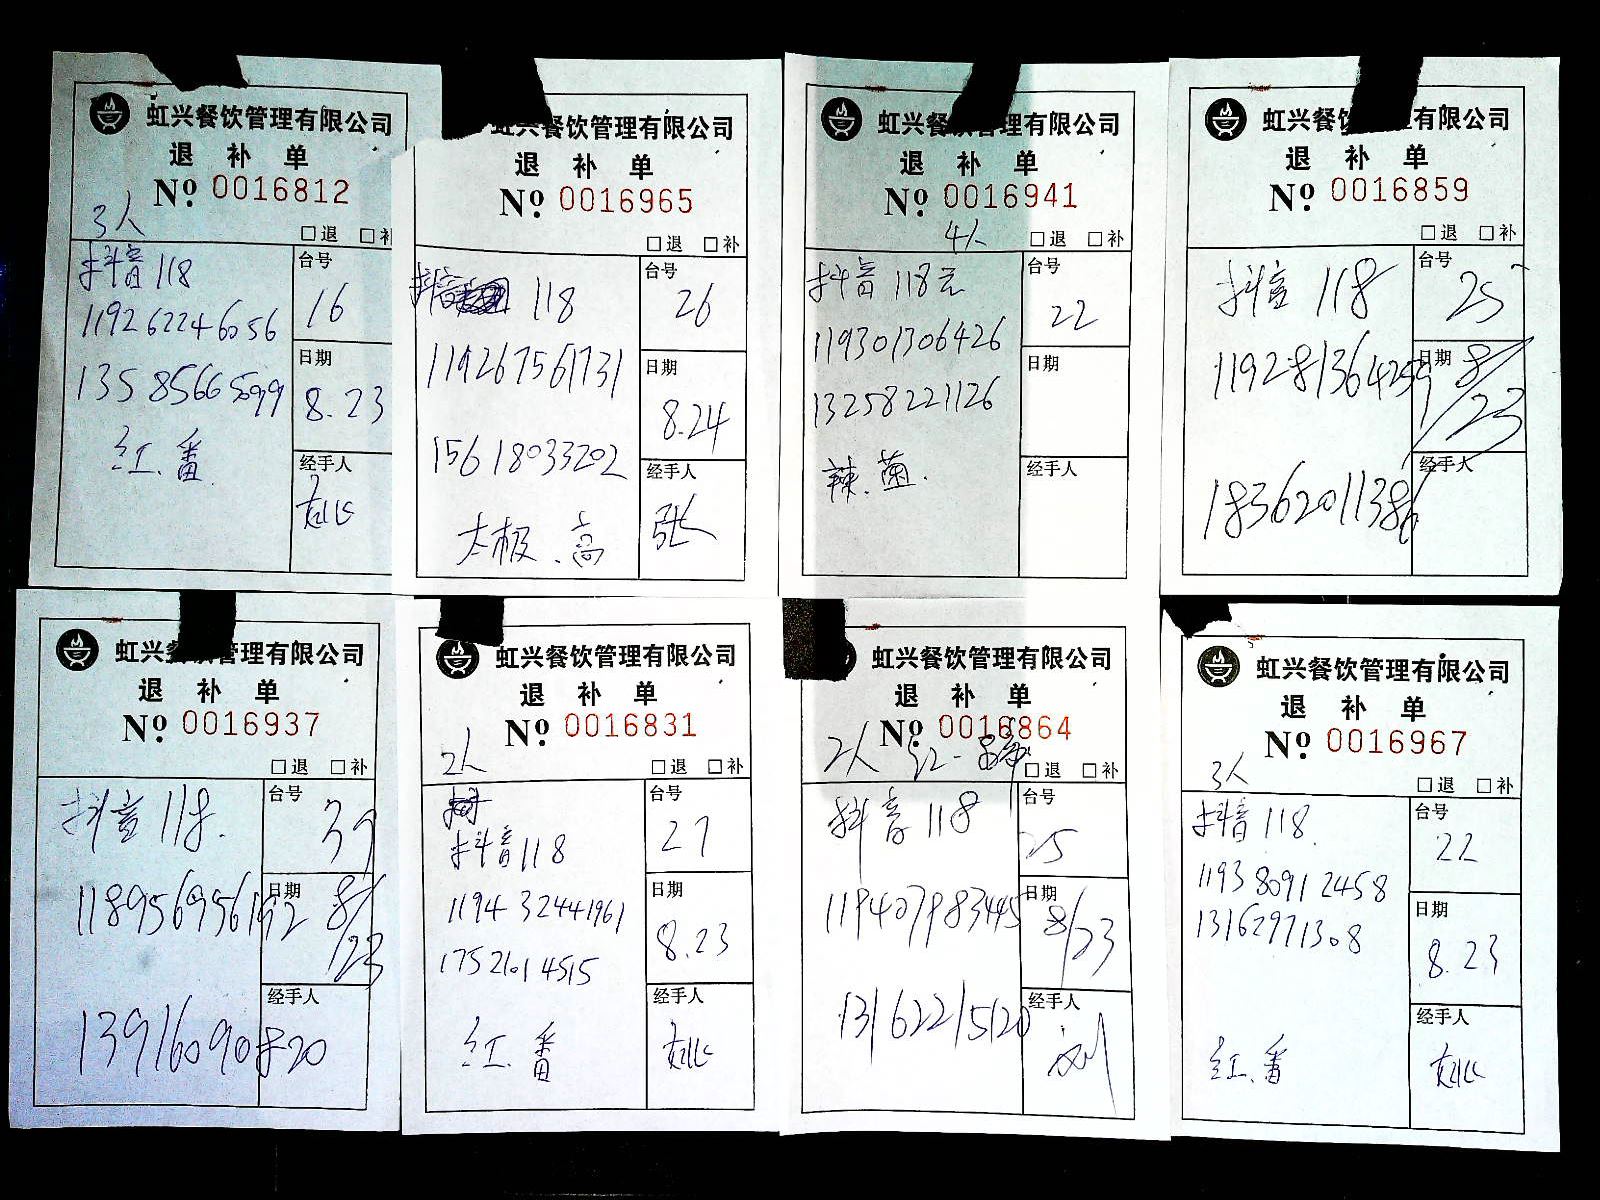 虹兴餐饮管理有限公司
退 补 单
Nº. 0016812
3人
□退 □补
抖音 118
119262246056
13585665999
红.番
台号
16
日期
8.23
经手人
虹兴餐饮管理有限公司
退 补 单
Nº. 0016965
□退 □补
抖音 118
119267561731
15618033202
太极.高
台号
26
日期
8.24
经手人
张
虹兴餐饮管理有限公司
退 补 单
Nº. 0016941
4人 □退 □补
抖音 118元
119301306426
13258221126
辣.菌.
台号
22
日期
经手人
虹兴餐饮管理有限公司
退 补 单
Nº. 0016859
□退 □补
抖音 118
119281364259
18362011386
台号
25
日期
8/23
经手人
虹兴餐饮管理有限公司
退 补 单
Nº. 0016937
□退 □补
抖音 118.
118956956192
13916090820
台号
日期
8/23
经手人
虹兴餐饮管理有限公司
退 补 单
Nº. 0016831
2人
□退 □补
抖音118
119432441961
17521014515
红.番
台号
27
日期
8.23
经手人
虹兴餐饮管理有限公司
退 补 单
Nº. 0016864
2人
□退 □补
抖音 118
119407983445
13162215120
台号
25
日期
8/23
经手人
刘
虹兴餐饮管理有限公司
退 补 单
Nº. 0016967
3人
□退 □补
抖音 118
119380912458
13162971308
红.番
台号
22
日期
8.23
经手人